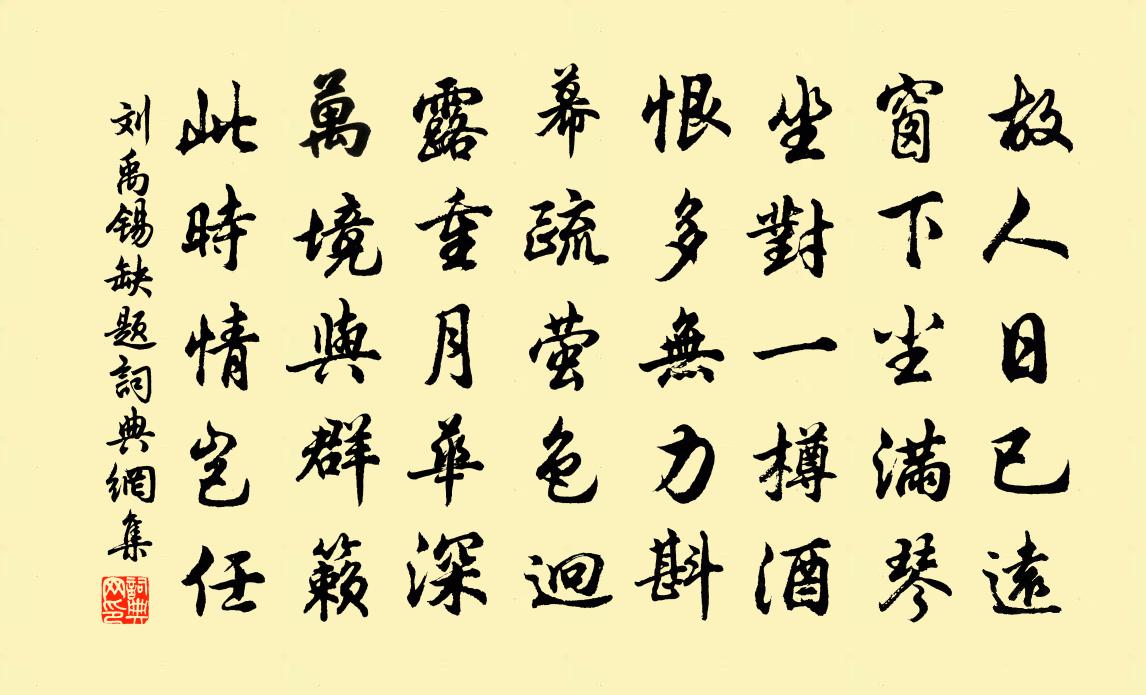 故人日已遠
窗下尘滿琴
坐對一樽酒
恨多無力斟
幕疏萤色迥
露重月華深
萬境與群籟
此時情岂任
刘禹锡缺题詞典網集
詞典网印